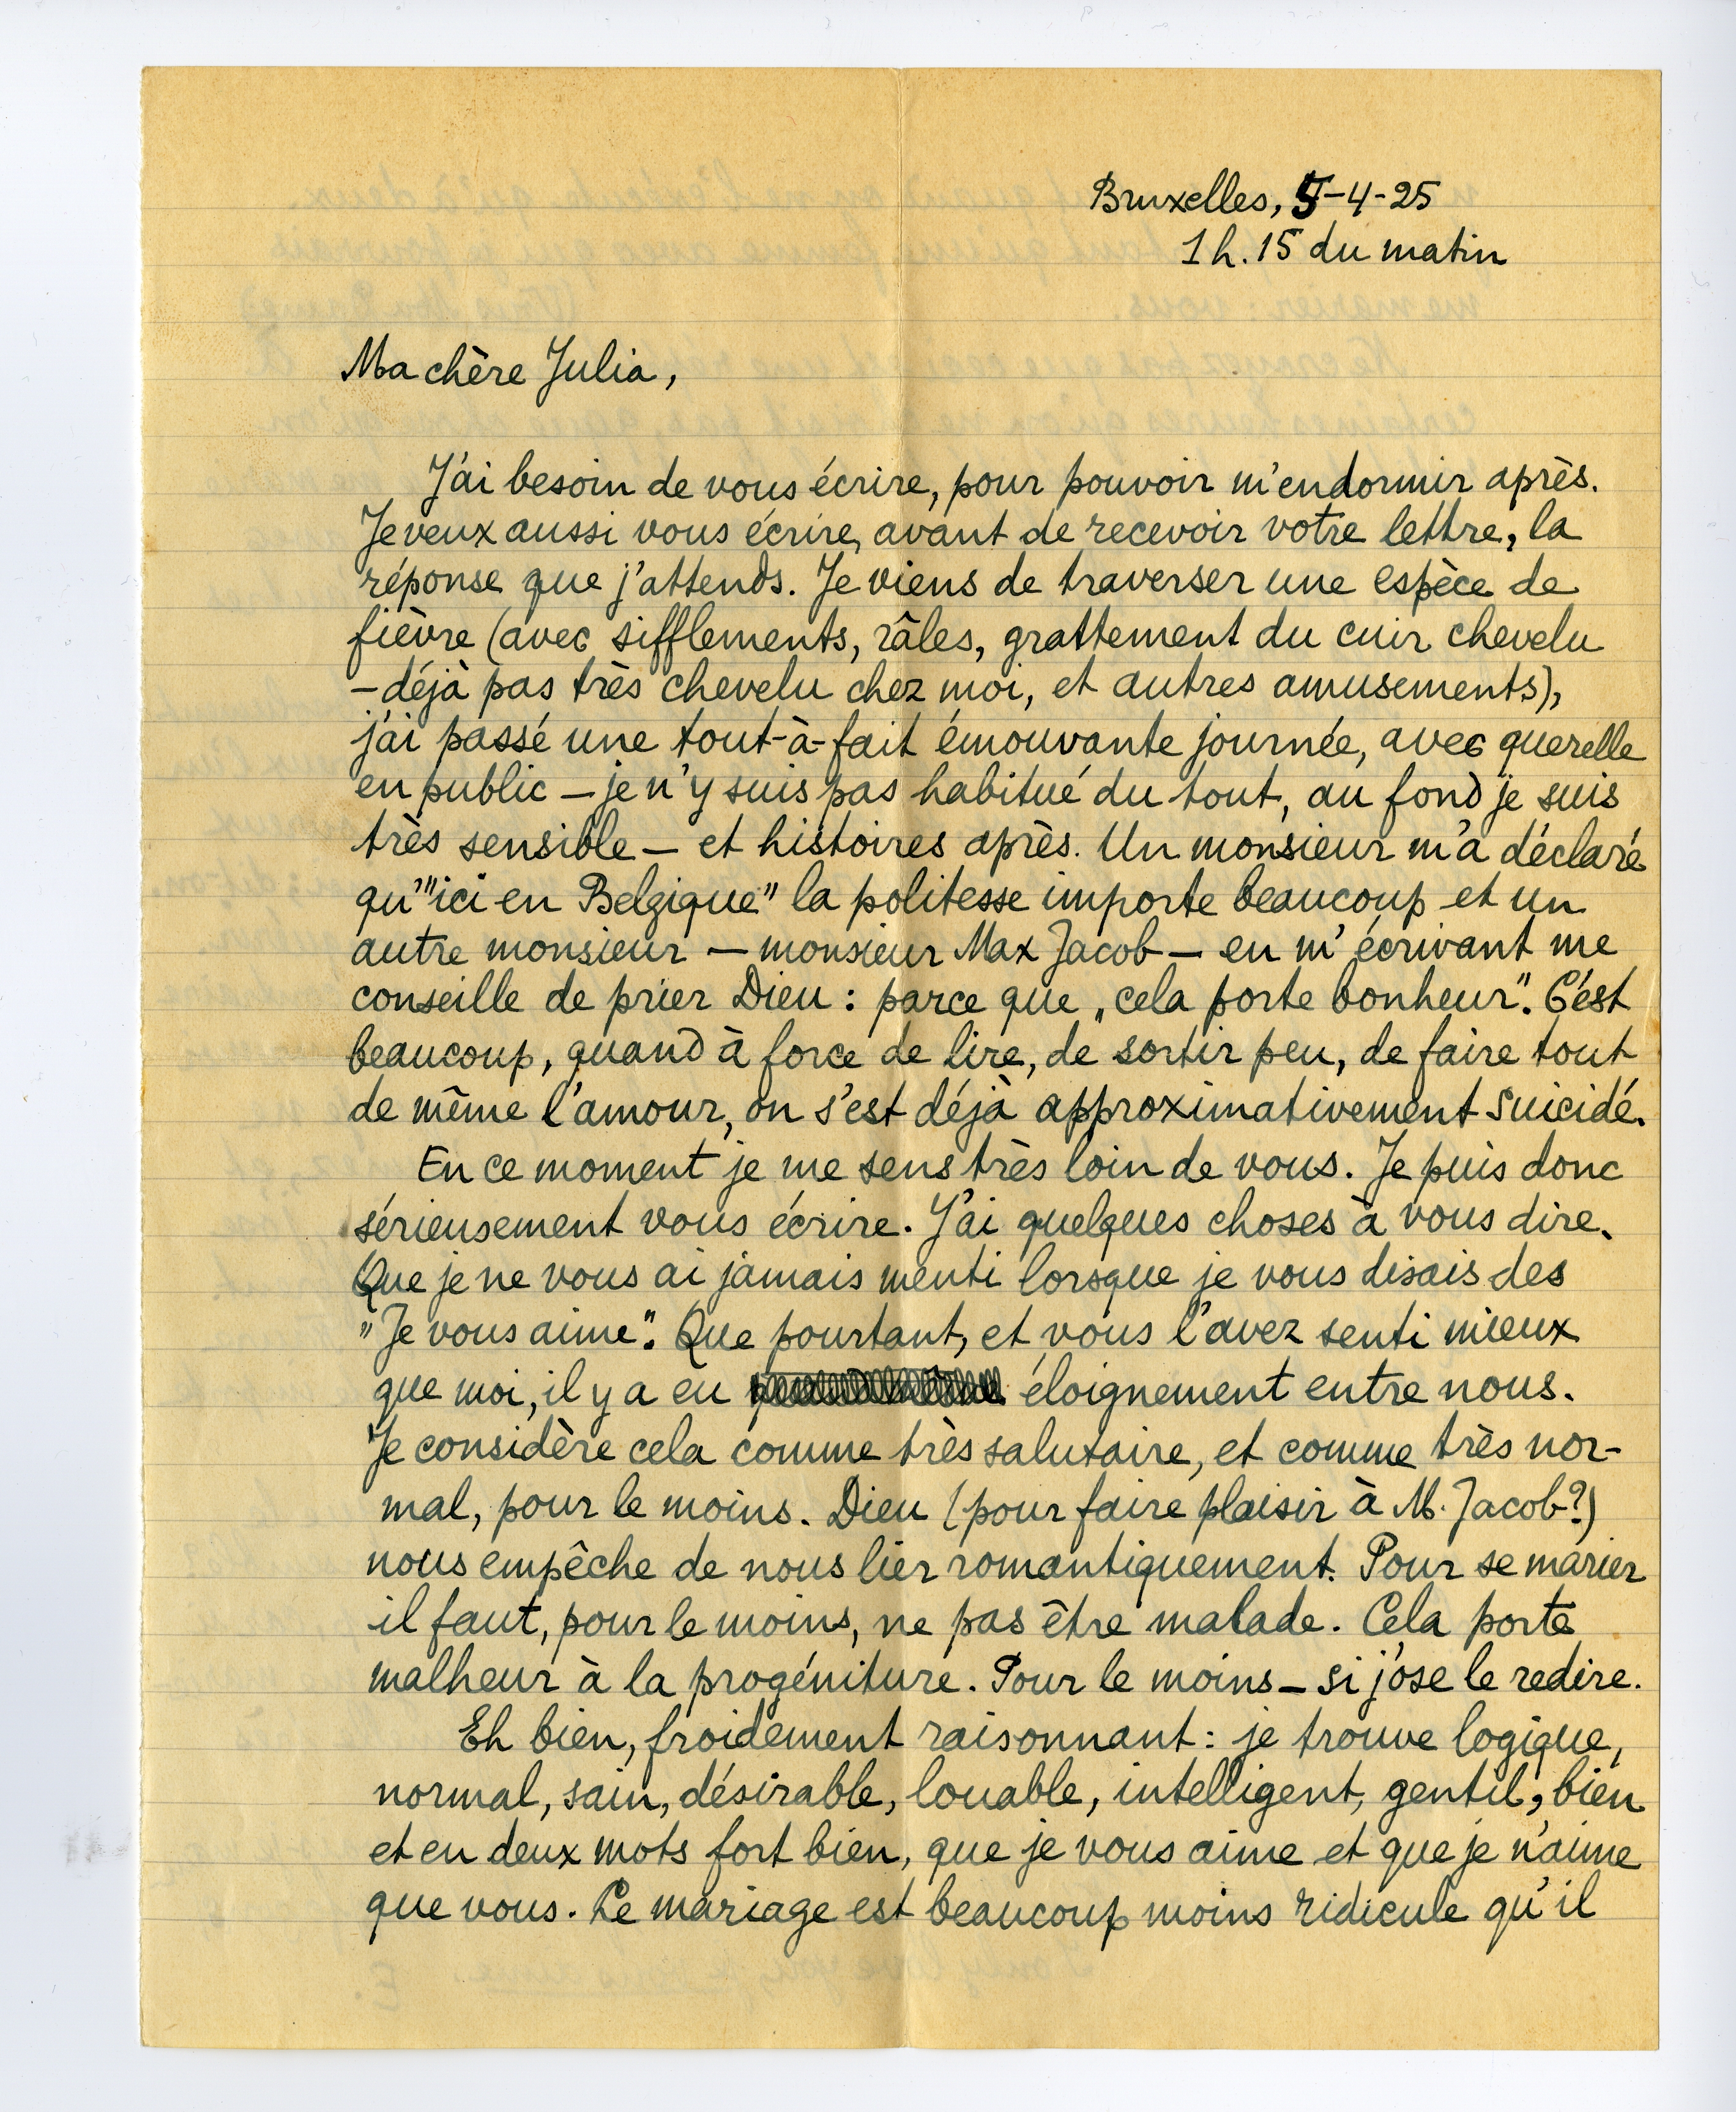 Bruxelles, 5-4-25
1 h. 15 du matin
Ma chère Julia,
J'ai besoin de vous écrire, pour pouvoir m'endormir après.
Je veux aussi vous écrire, avant de recevoir votre lettre, la
réponse que j'attends. Je viens de traverser une espèce de
fièvre (avec sifflements, râles, grattement du cuir chevelu
– déjà pas très chevelu chez moi, et autres amusements),
j'ai passé une tout-à-fait émouvante journée, avec querelle
en public – je n'y suis pas habitué du tout, au fond je suis
très sensible – et histoires après. Un monsieur m'a déclaré
qu'"ici en Belgique" la politesse importe beaucoup et un
autre monsieur – monsieur Max Jacob – en m'écrivant me
conseille de prier Dieu : parce que „cela porte bonheur". C'est
beaucoup, quand à force de lire, de sortir peu, de faire tout
de même l'amour, on s'est déjà approximativement suicidé.
En ce moment je me sens très loin de vous. Je puis donc
sérieusement vous écrire. J'ai quelques choses à vous dire.
Que je ne vous ai jamais menti lorsque je vous disais des
"Je vous aime". Que pourtant, et vous l'avez senti mieux
que moi, il y a eu éloignement entre nous.
Je considère cela comme très salutaire, et comme très nor-
mal, pour le moins. Dieu (pour faire plaisir à M. Jacob?)
nous empêche de nous lier romantiquement. Pour se marier
il faut, pour le moins, ne pas être malade. Cela porte
malheur à la progéniture. Pour le moins – si j'ose le redire.
Eh bien, froidement raisonnant : je trouve logique,
normal, sain, désirable, louable, intelligent, gentil, bien
et en deux mots fort bien, que je vous aime et que je n'aime
que vous. Le mariage est beaucoup moins ridicule qu'il